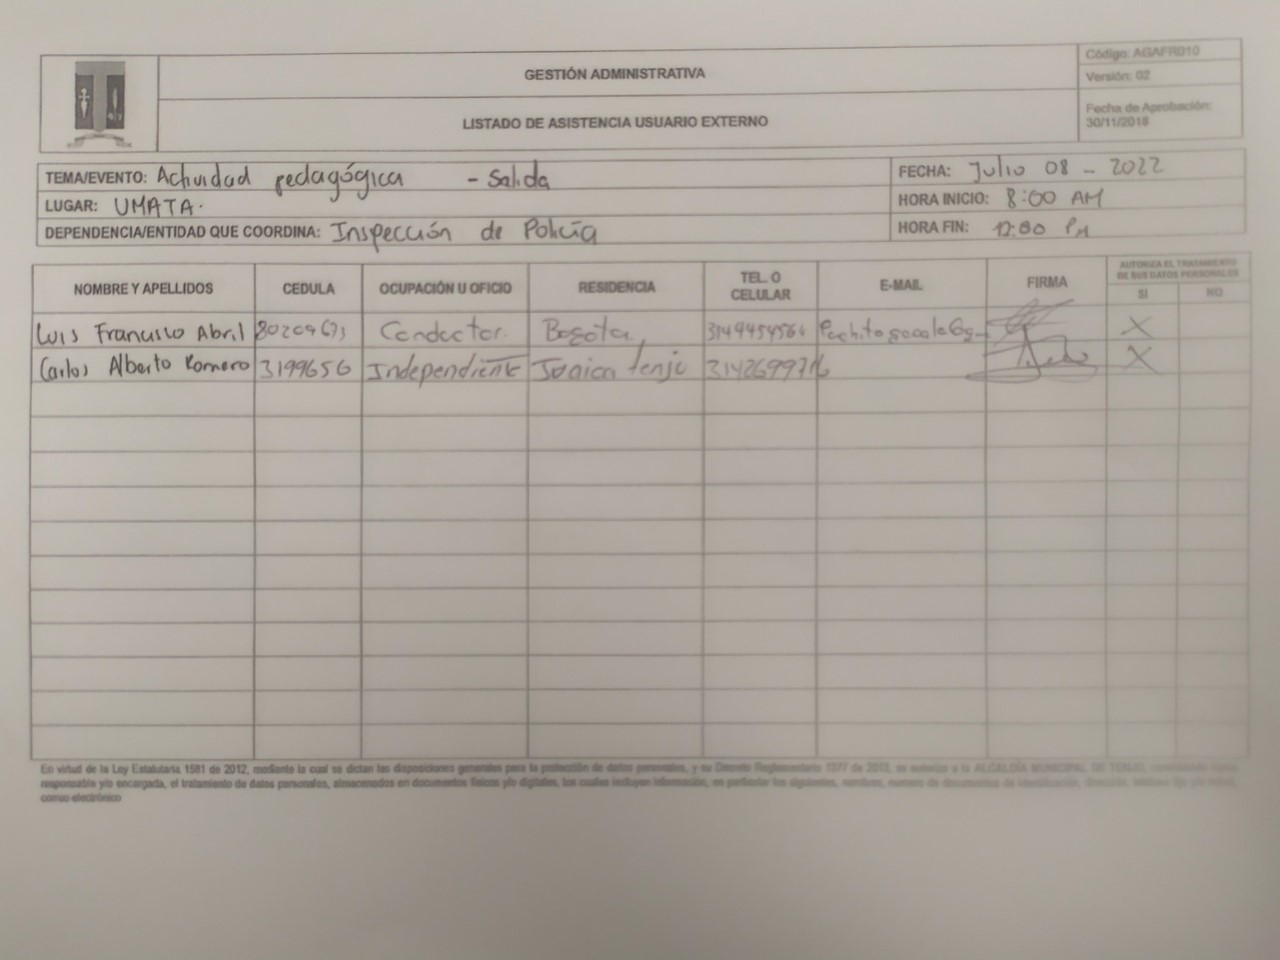 GESTIÓN ADMINISTRATIVA
LISTADO DE ASISTENCIA USUARIO EXTERNO
Código: AGAFR010
Versión: 02
Fecha de Aprobación:
30/11/2018
TEMA/EVENTO: Actividad pedagógica - Salida
FECHA: Julio 08 - 2022
LUGAR: UMATA.
HORA INICIO: 8:00 AM
DEPENDENCIA/ENTIDAD QUE COORDINA: Inspección de Policía
HORA FIN: 12:00 PM
NOMBRE Y APELLIDOS CEDULA OCUPACIÓN U OFICIO RESIDENCIA TEL. O CELULAR E-MAIL FIRMA AUTORIZA EL TRATAMIENTO DE SUS DATOS PERSONALES SI NO
Luis Francisco Abril Conductor. Bogota X
Carlos Alberto Romero 3199656 Independiente tenjo X
En virtud de la Ley Estatutaria 1581 de 2012, mediante la cual se dictan las disposiciones generales para la protección de datos personales, y su Decreto Reglamentario 1377 de 2013, se autoriza a la ALCALDÍA MUNICIPAL DE TENJO, como
responsable y/o encargada, el tratamiento de datos personales, almacenados en documentos físicos y/o digitales, los cuales incluyen información, en particular los siguientes, nombres, numero de documentos de identificación, dirección, teléfono fijo y/o móvil,
correo electrónico